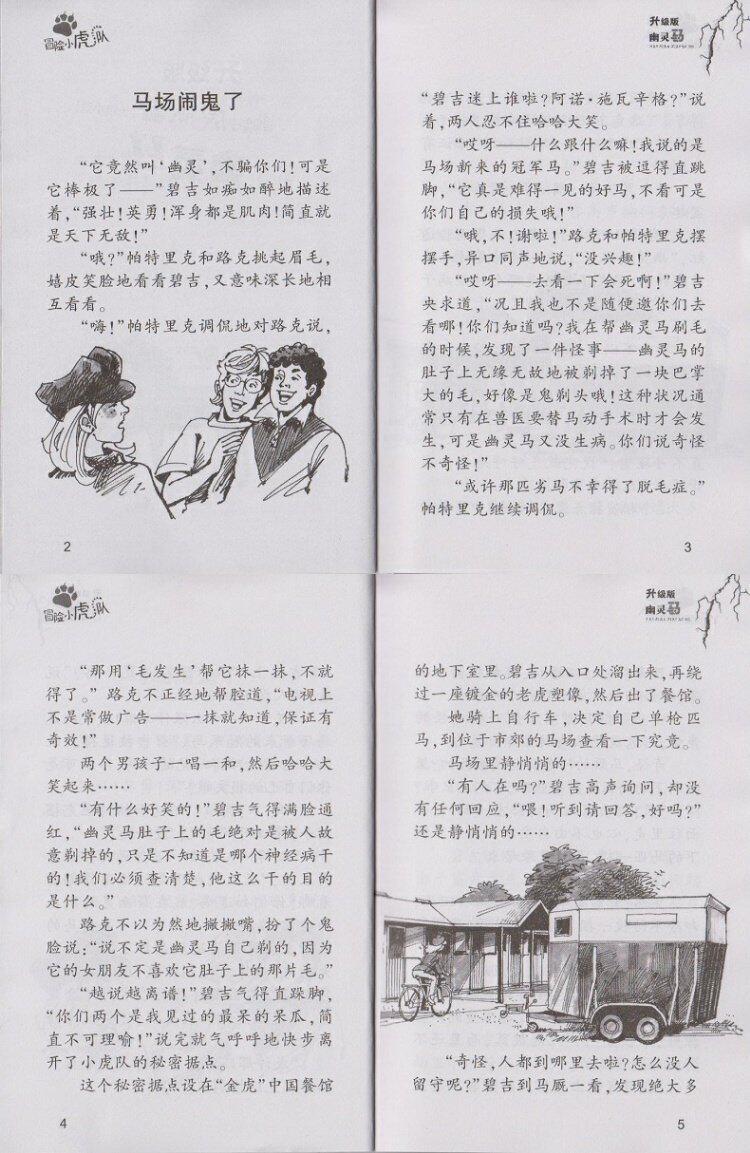 冒险小虎队
马场闹鬼了
“它竟然叫‘幽灵’，不骗你们！可是
它棒极了——”碧吉如痴如醉地描述
着，“强壮！英勇！浑身都是肌肉！简直就
是天下无敌！”
“哦？”帕特里克和路克挑起眉毛，
嬉皮笑脸地看看碧吉，又意味深长地相
互看看。
“嗨！”帕特里克调侃地对路克说，
2
升级版
幽灵马
“碧吉迷上谁啦？阿诺·施瓦辛格？”说
着，两人忍不住哈哈大笑。
“哎呀——什么跟什么嘛！我说的是
马场新来的冠军马。”碧吉被逗得直跳
脚，“它真是难得一见的好马，不看可是
你们自己的损失哦！”
“哦，不！谢啦！”路克和帕特里克摆
摆手，异口同声地说，“没兴趣！”
“哎呀——去看一下会死啊！”碧吉
央求道，“况且我也不是随便邀你们去
看哪！你们知道吗？我在帮幽灵马刷毛
的时候，发现了一件怪事——幽灵马的
肚子上无缘无故地被剃掉了一块巴掌
大的毛，好像是鬼剃头哦！这种状况通
常只有在兽医要替马动手术时才会发
生，可是幽灵马又没生病。你们说奇怪
不奇怪！”
“或许那匹劣马不幸得了脱毛症。”
帕特里克继续调侃。
3
冒险小虎队
“那用‘毛发生’帮它抹一抹，不就
得了。”路克不正经地帮腔道，“电视上
不是常做广告——一抹就知道，保证有
奇效！”
两个男孩子一唱一和，然后哈哈大
笑起来……
“有什么好笑的！”碧吉气得满脸通
红，“幽灵马肚子上的毛绝对是被人故
意剃掉的，只是不知道是哪个神经病干
的！我们必须查清楚，他这么干的目的
是什么。”
路克不以为然地撇撇嘴，扮了个鬼
脸说：“说不定是幽灵马自己剃的，因为
它的女朋友不喜欢它肚子上的那片毛。”
“越说越离谱！”碧吉气得直跺脚，
“你们两个是我见过的最呆的呆瓜，简
直不可理喻！”说完就气呼呼地快步离
开了小虎队的秘密据点。
这个秘密据点设在“金虎”中国餐馆
4
升级版
幽灵马
的地下室里。碧吉从入口处溜出来，再绕
过一座镀金的老虎塑像，然后出了餐馆。
她骑上自行车，决定自己单枪匹
马，到位于市郊的马场查看一下究竟。
马场里静悄悄的……
“有人在吗？”碧吉高声询问，却没
有任何回应，“喂！听到请回答，好吗？”
还是静悄悄的……
“奇怪，人都到哪里去啦？怎么没人
留守呢？”碧吉到马厩一看，发现绝大多
5